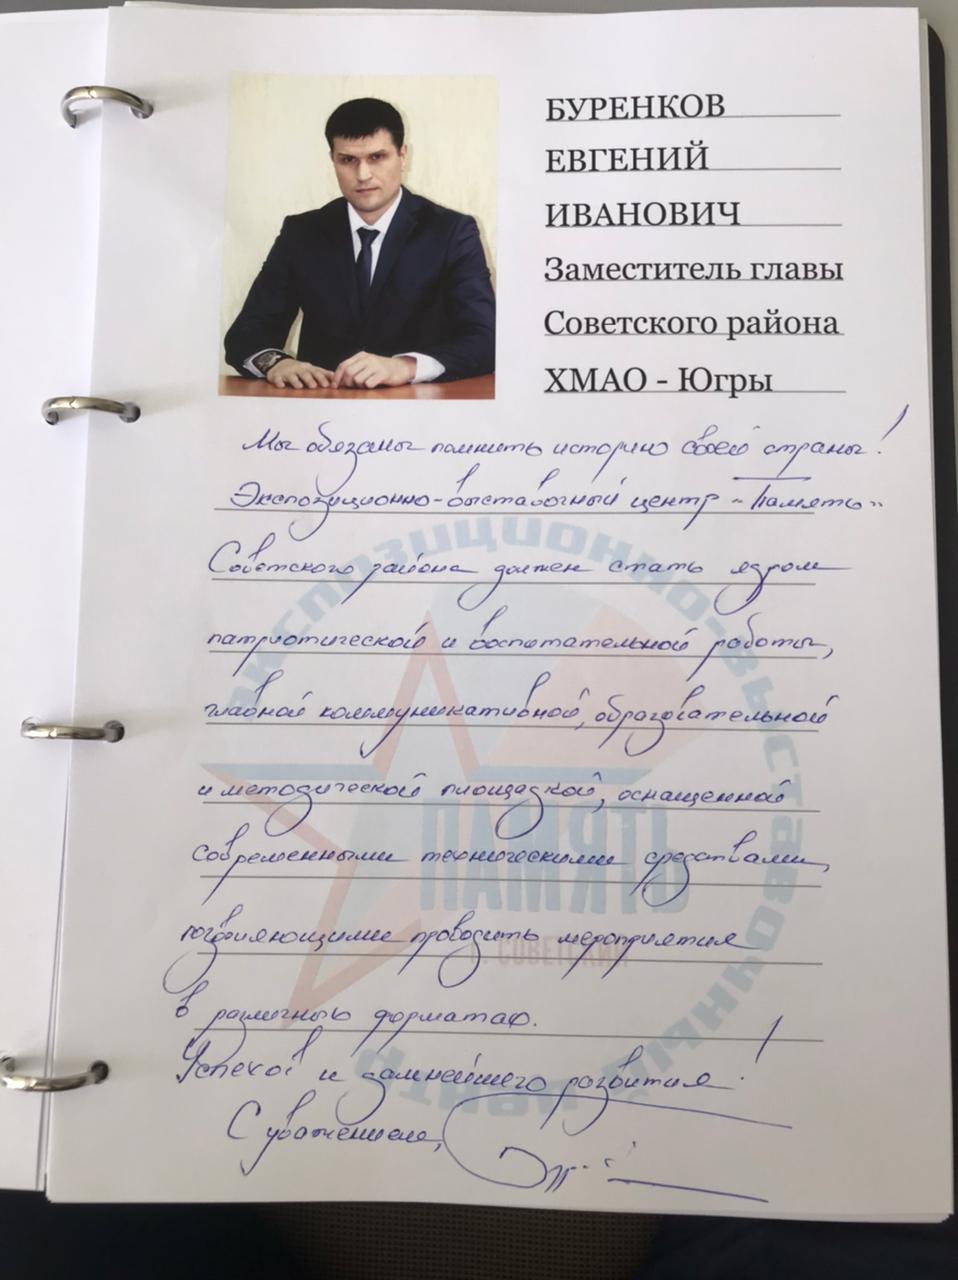 БУРЕНКОВ
ЕВГЕНИЙ
ИВАНОВИЧ
Заместитель главы
Советского района
ХМАО - Югры
Мы обязаны помнить историю своей страны!
Экспозиционно-выставочный центр "Память"
Советского района должен стать ядром
патриотической и воспитательной работы,
главной коммуникативной, образовательной
и методической площадкой, оснащенной
современными техническими средствами,
позволяющими проводить мероприятия
в различных форматах.
Успехов и дальнейшего развития!
С уважением,
экспозиционно-выставочный центр
ПАМЯТЬ
П. СОВЕТСКИЙ